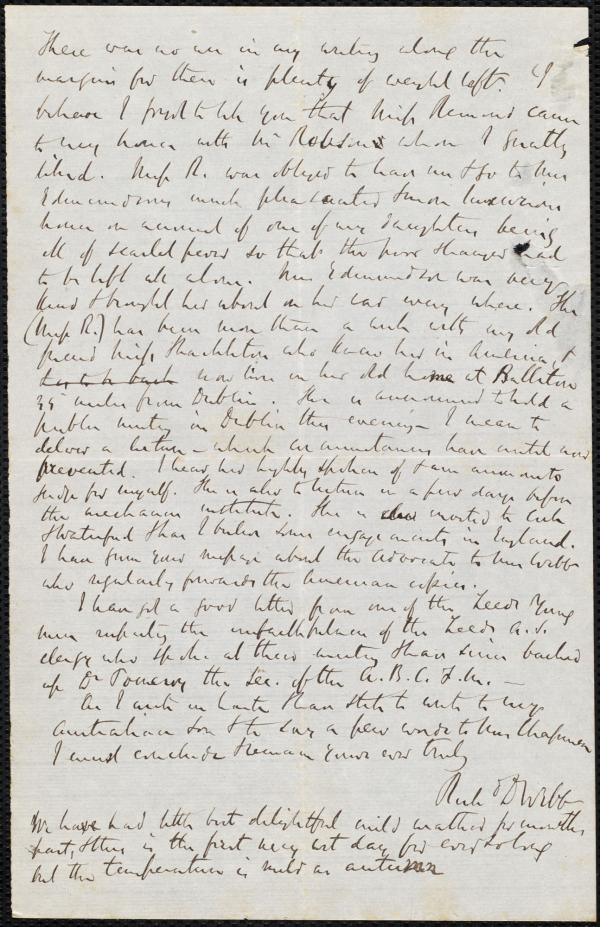 There was no use in my writing along the
margins for there is plenty of weight left. I
believe I forgot to tell you that Miss Remond came
to my house with the Robsons whom I greatly
liked. Miss R. was obliged to leave us & go to Mrs
Edmundsons much pleasanter & more luxurious
house on account of one of my daughters being
ill of scarlet fever so that the poor stranger had
to be left all alone. Mrs Edmundson was very
kind & brought her about on her car every where. She
(Miss R.) has been more than a week with my old
friend Miss Shackleton who knew her in America &
now lives in her old home at Ballitore
35 miles from Dublin. She is announced to hold a
public meeting in Dublin this evening – I mean to
deliver a lecture – which circumstances have until now
prevented. I hear her highly spoken of & am anxious to
judge for myself. She is also to lecture in a few days before
the mechanics institute. She is also invited to Cork
& Waterford & has I believe some engagements in England.
I have given your message about the Advocate to Mrs Webb
who regularly forwards the American copies.
I have got a good letter from one of the Leeds Young
men respecting the unfaithfulness of the Leeds A.S.
clergy who spoke at their meeting & have since backed
up Dr Pomeroy the Sec. of the A.B.C.F.M. –
As I write in haste & have still to write to my
Australian son & to say a few words to Mrs Chapman
I must conclude & remain yours ever truly
Richd D Webb
We have had little but delightful mild weather for months
past, & this is the first very wet day for ever so long
but the temperature is mild as autumn